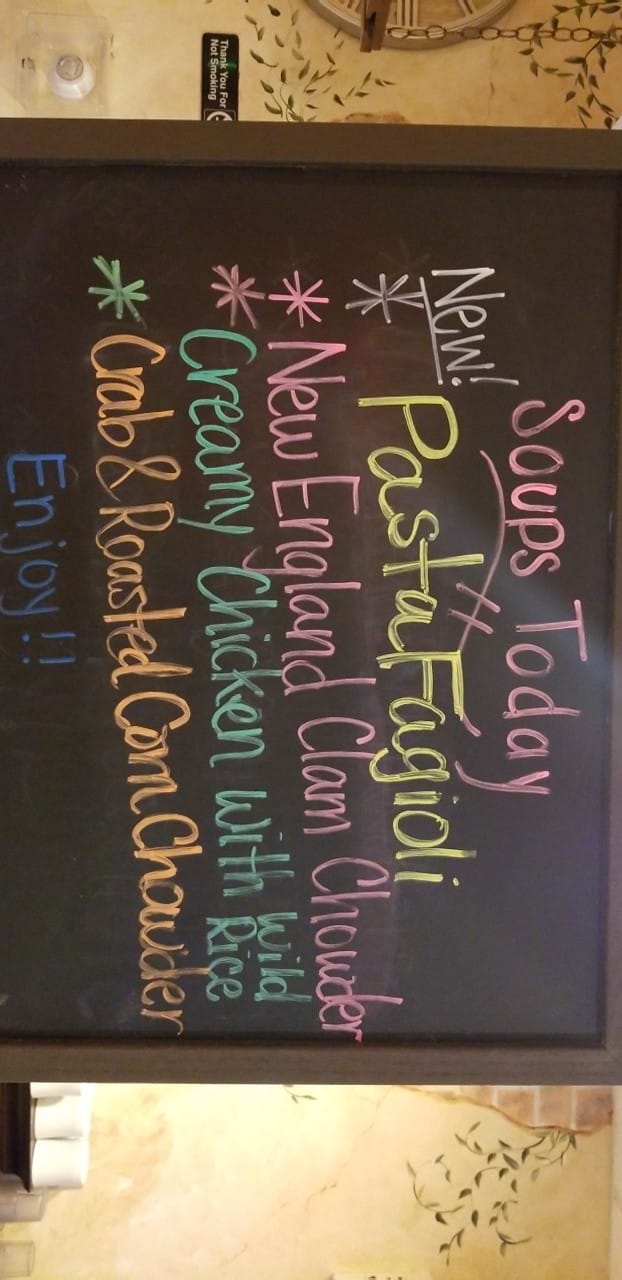 Thank You For
Not Smoking
Soups Today
New!
* Pasta Fagioli
* New England Clam Chowder
* Creamy Chicken with Wild Rice
* Crab & Roasted Corn Chowder
Enjoy!!